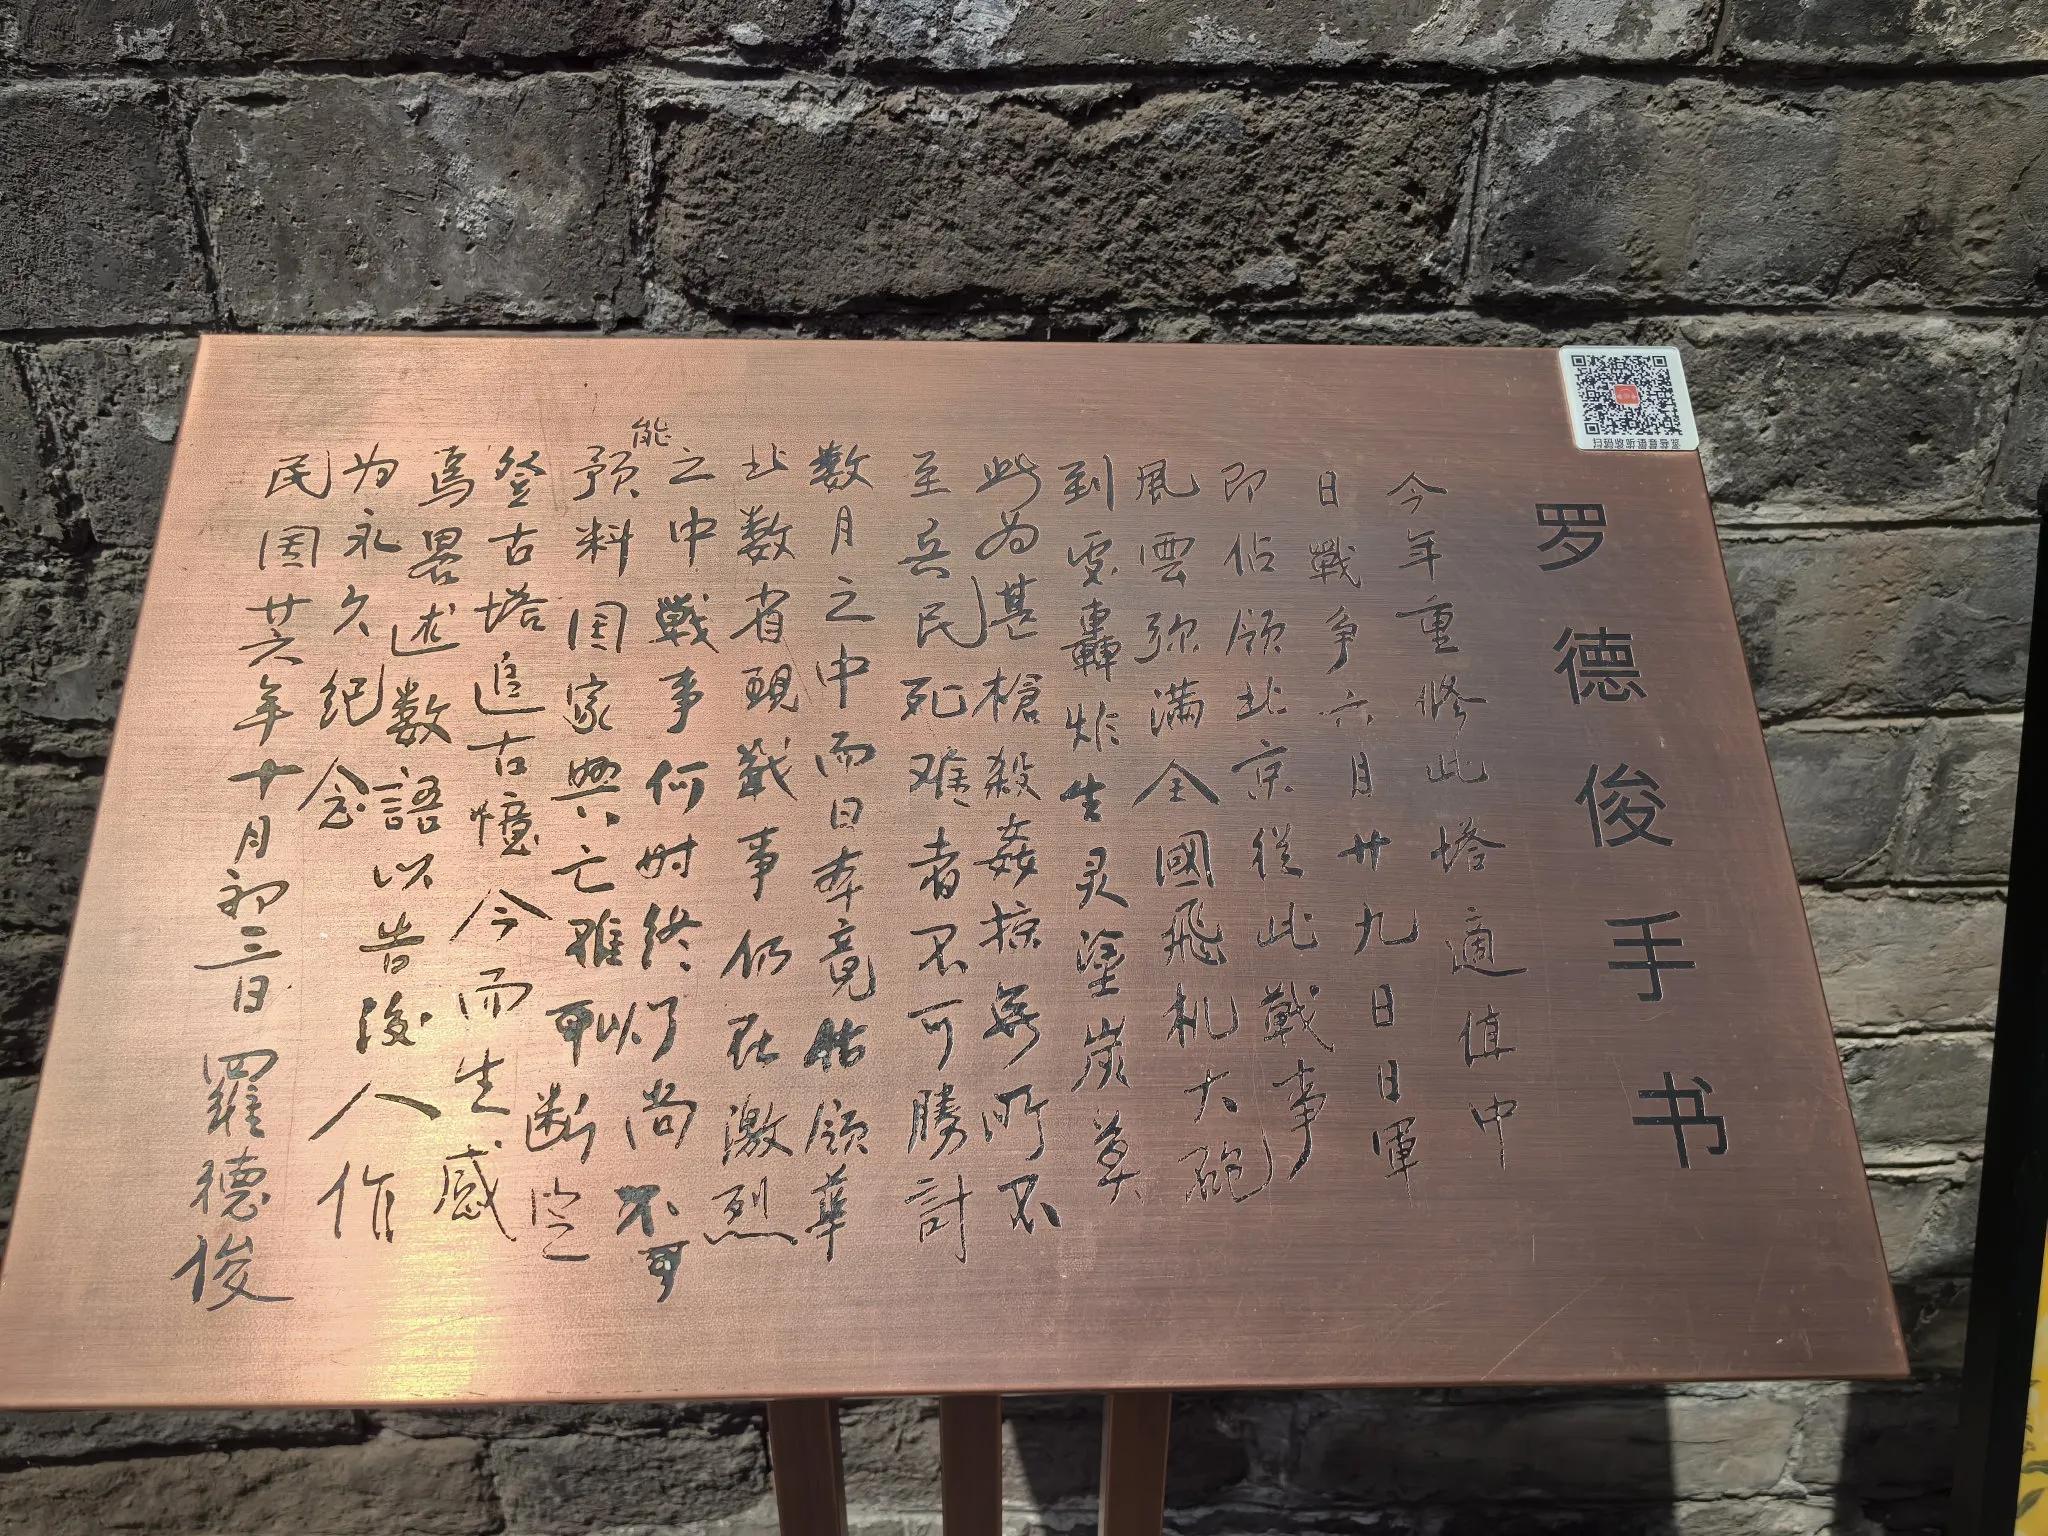 罗德俊手书
今年重修此塔適值中
日戰争六月廿九日日軍
即佔领北京從此戰事
風雲弥满全國飛机大砲
到処轟炸生灵塗炭莫
此为甚槍殺姦掠無所不
至兵民死难者不可勝計
数月之中而日本竟佔领華
北数省現戰事仍在激烈
之中戰事何时终了尚不可
能
预料国家興亡难以断定
登古塔追古憶今而生感
焉畧述数語以告後人作
为永久纪念
民国廿六年十月初三日 羅德俊